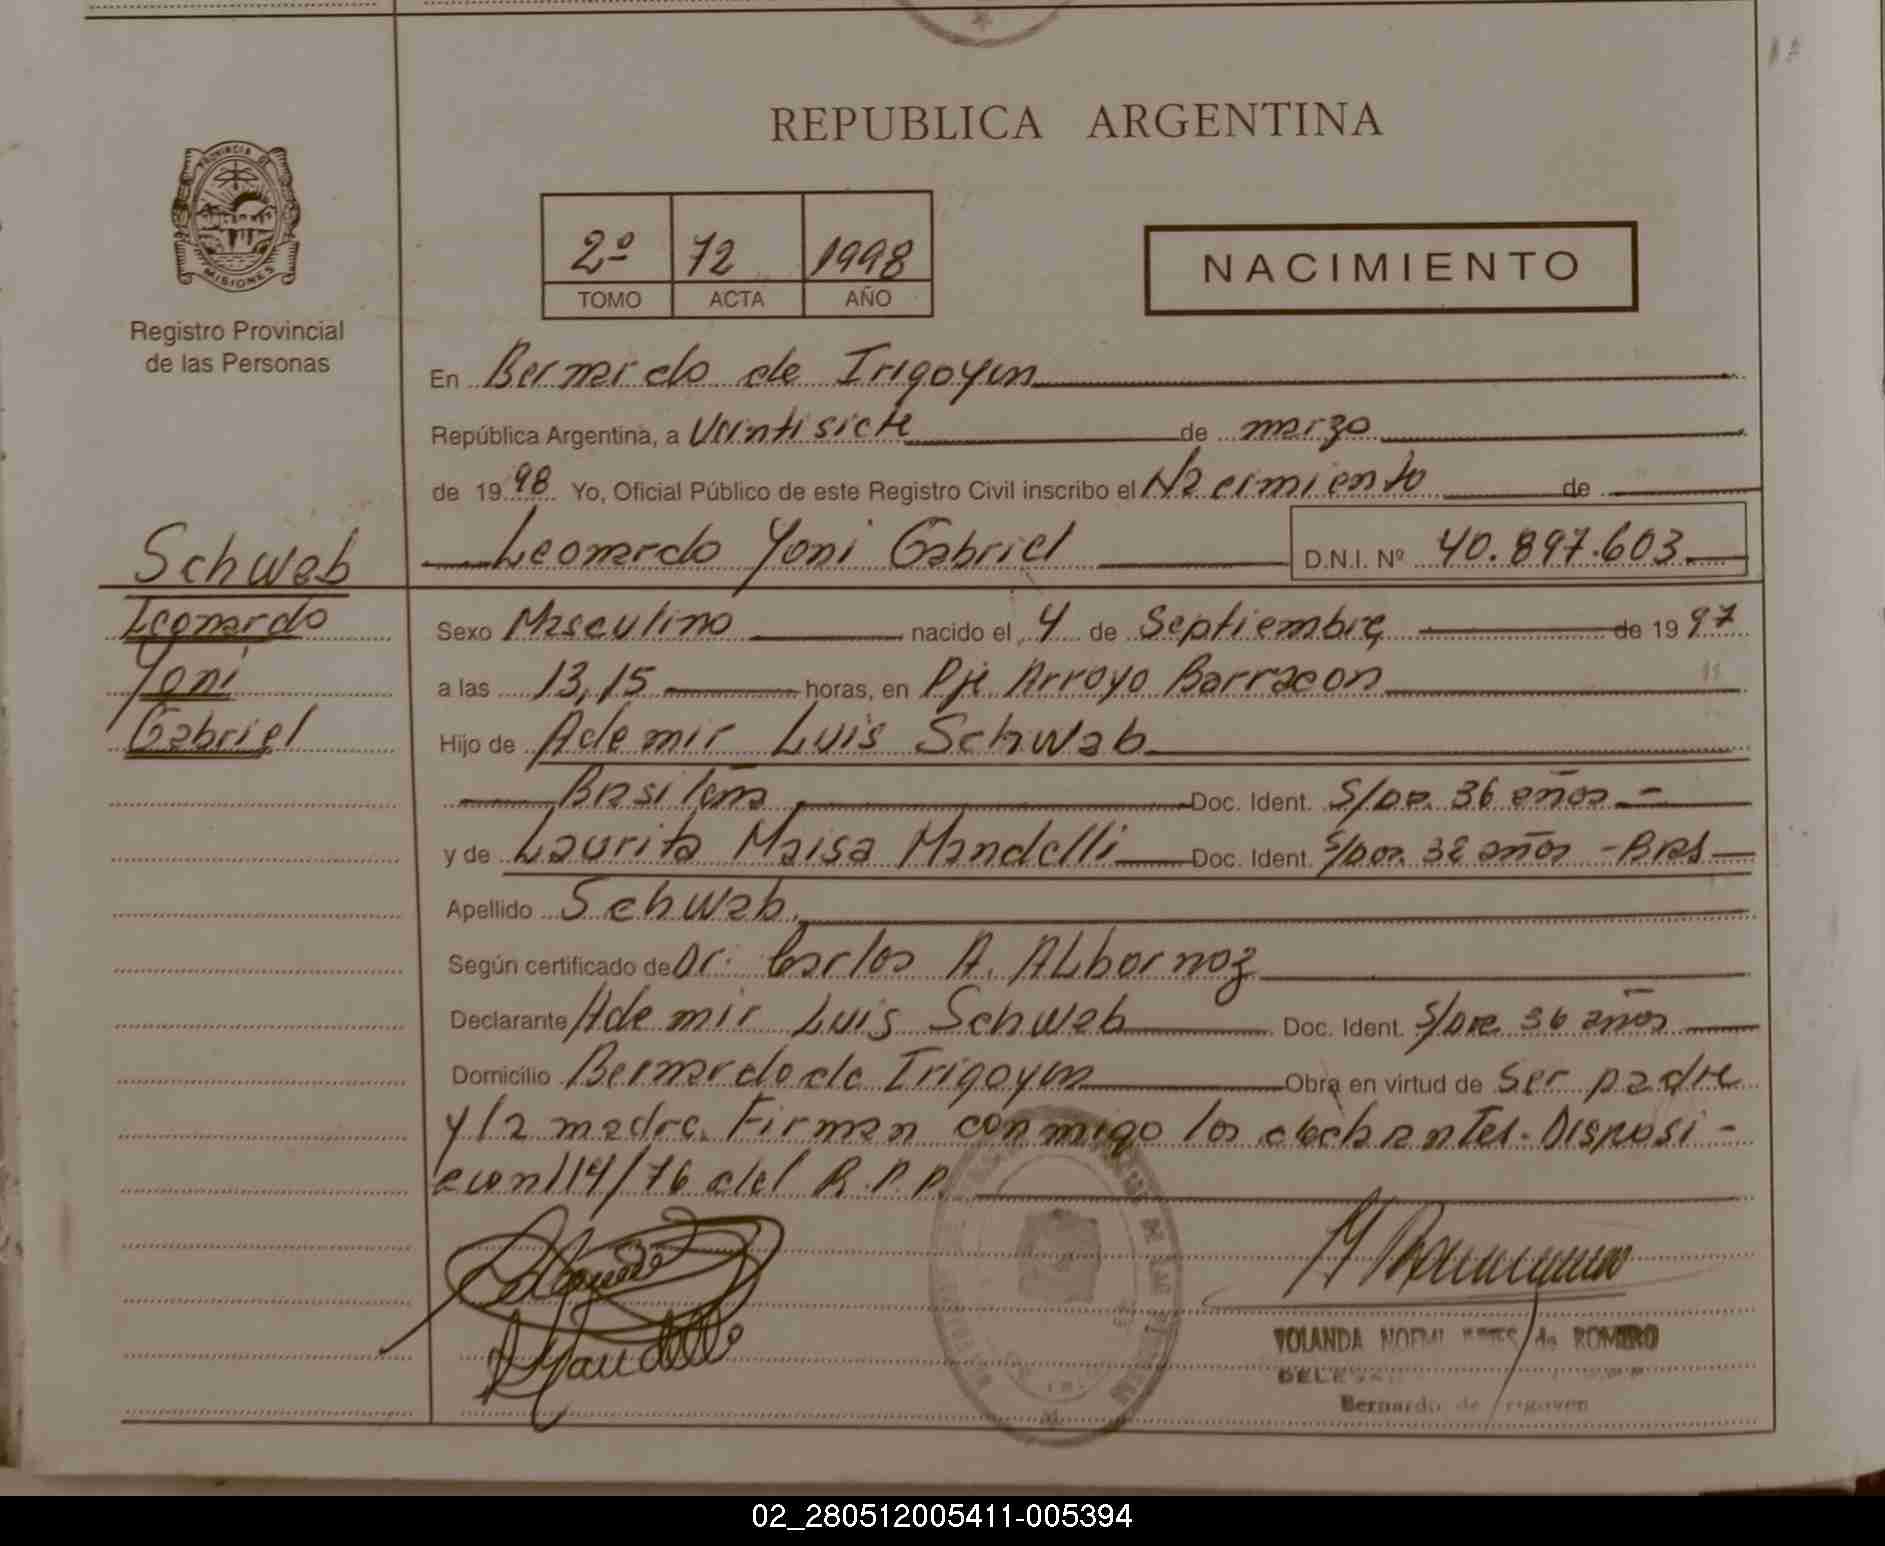 REPUBLICA ARGENTINA
PROVINCIA DE
MISIONES
Registro Provincial
de las Personas
2º 72 1998
TOMO ACTA AÑO
NACIMIENTO
En Bernardo de Irigoyen
República Argentina, a Veintisiete de marzo
de 1998 Yo, Oficial Público de este Registro Civil inscribo el Nacimiento de
Leonardo Yoni Gabriel D.N.I. Nº 40.897.603
Schwab
Leonardo
Yoni
Gabriel
Sexo Masculino nacido el 4 de Septiembre de 1997
a las 13,15 horas, en Pje Arroyo Barracon
Hijo de Ademir Luis Schwab
Brasileña Doc. Ident. S/Doc. 36 años -
y de Laurita Maisa Mandelli Doc. Ident. S/Doc. 32 años - Bras
Apellido Schwab
Según certificado de Dr. Carlos A. Albornoz
Declarante Ademir Luis Schwab Doc. Ident. S/Doc 36 años
Domicilio Bernardo de Irigoyen Obra en virtud de Ser padre
y la madre. Firman conmigo los declarantes. Disposi-
cion 114/76 del R.P.P.
YOLANDA NOEMI de ROMERO
Bernardo de Irigoyen
02_280512005411-005394